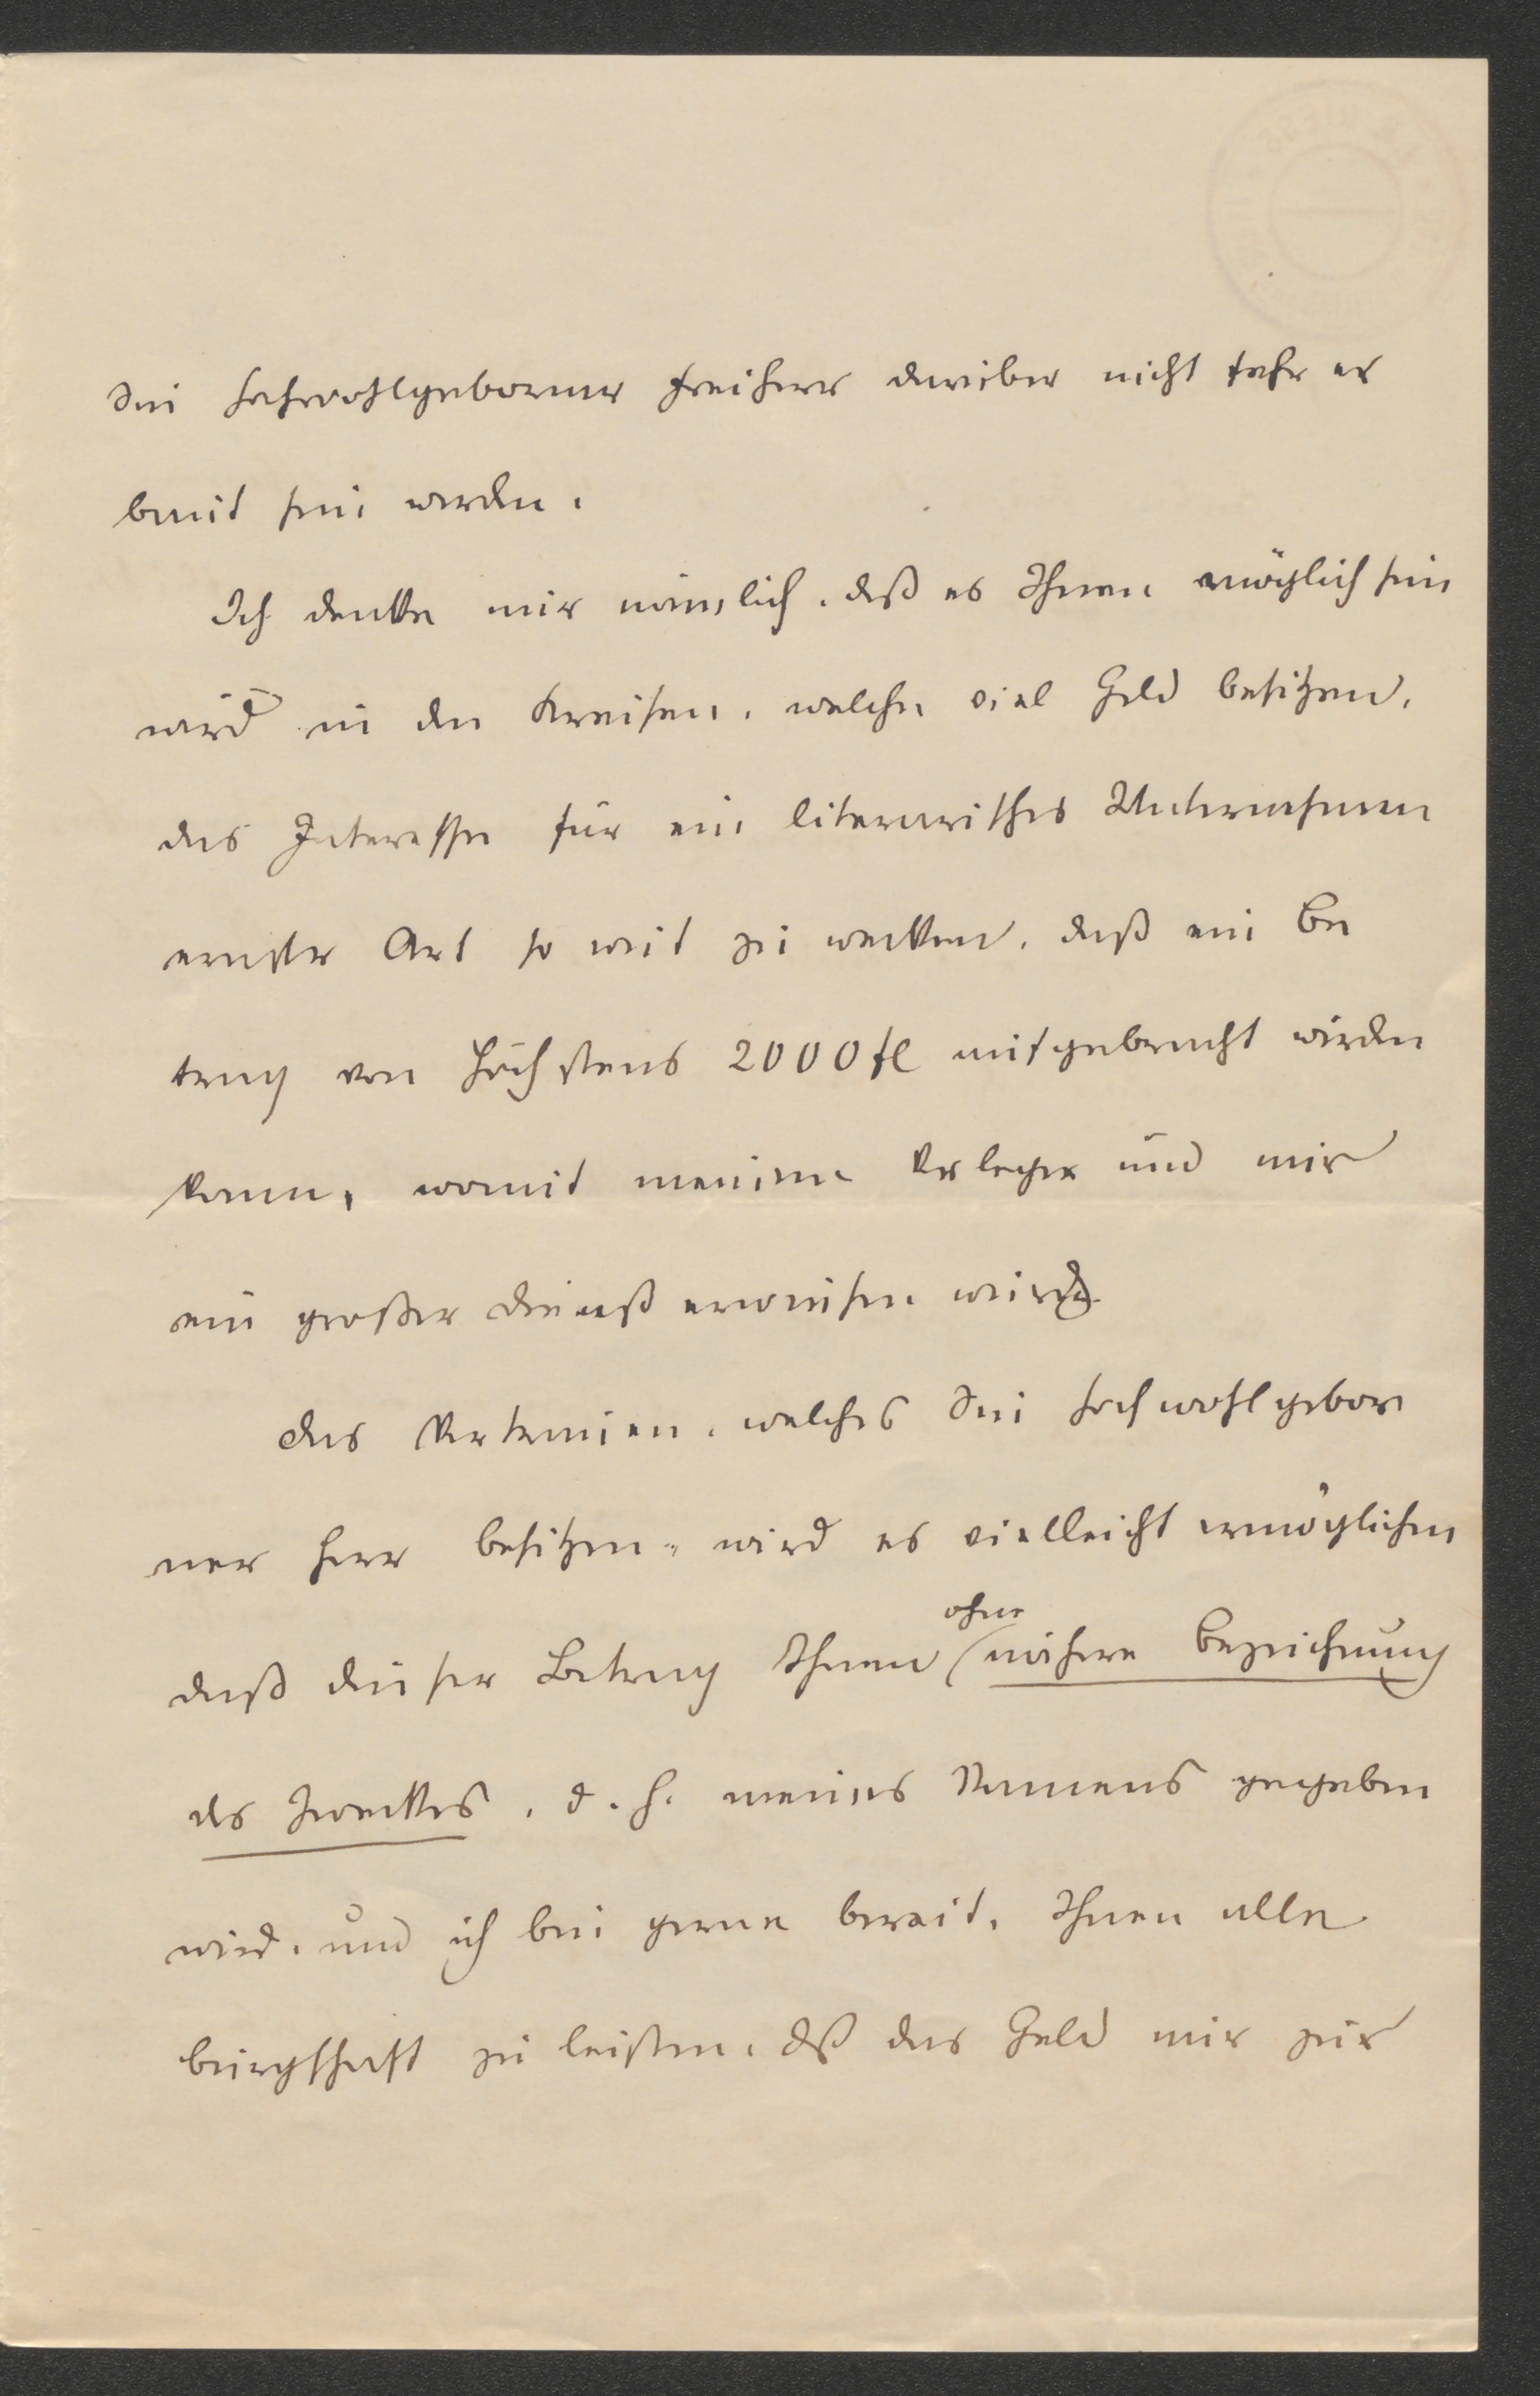 Sie hochwohlgeborner Freiherr darüber nicht sehr er
baut sein werden.
Ich denke mir nämlich, daß es Ihnen möglich sein
wird in den Kreisen, welche viel Geld besitzen,
das Interesse für ein literarisches Unternehmen
ernster Art so weit zu wecken, daß ein Be
trag von höchstens 2000 fl aufgebracht würden
kann, womit meinem Verleger und mir
ein großer Dienst erwiesen würde.
Das Vertrauen, welches Sie hochwohlgebor
ner Herr besitzen, wird es vielleicht ermöglichen
daß dieser Betrag Ihnen ohne nähere Bezeichnung
des Zweckes, d. h. meines Namens gegeben
wird, und ich bin gerne bereit, Ihnen alle
bürgschaft zu leisten, dß das Geld mir zur